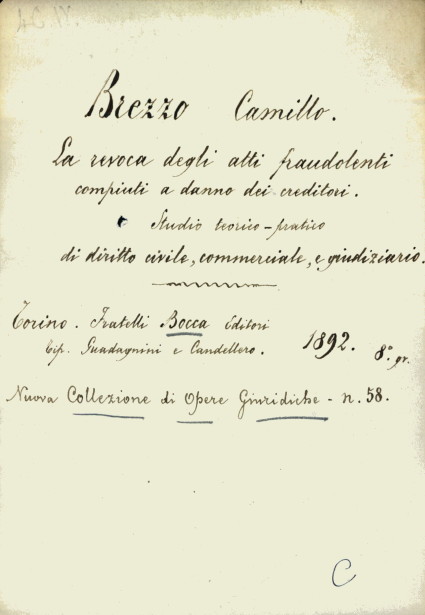 Brezzo Camillo.
La revoca degli atti fraudolenti
compiuti a danno dei creditori.
Studio teorico-pratico
di diritto civile, commerciale, e giudiziario.
Torino. Fratelli Bocca Editori
Tip. Guadagnini e Candellero. 1892. 8° gr.
Nuova Collezione di Opere Giuridiche - n. 58.
C